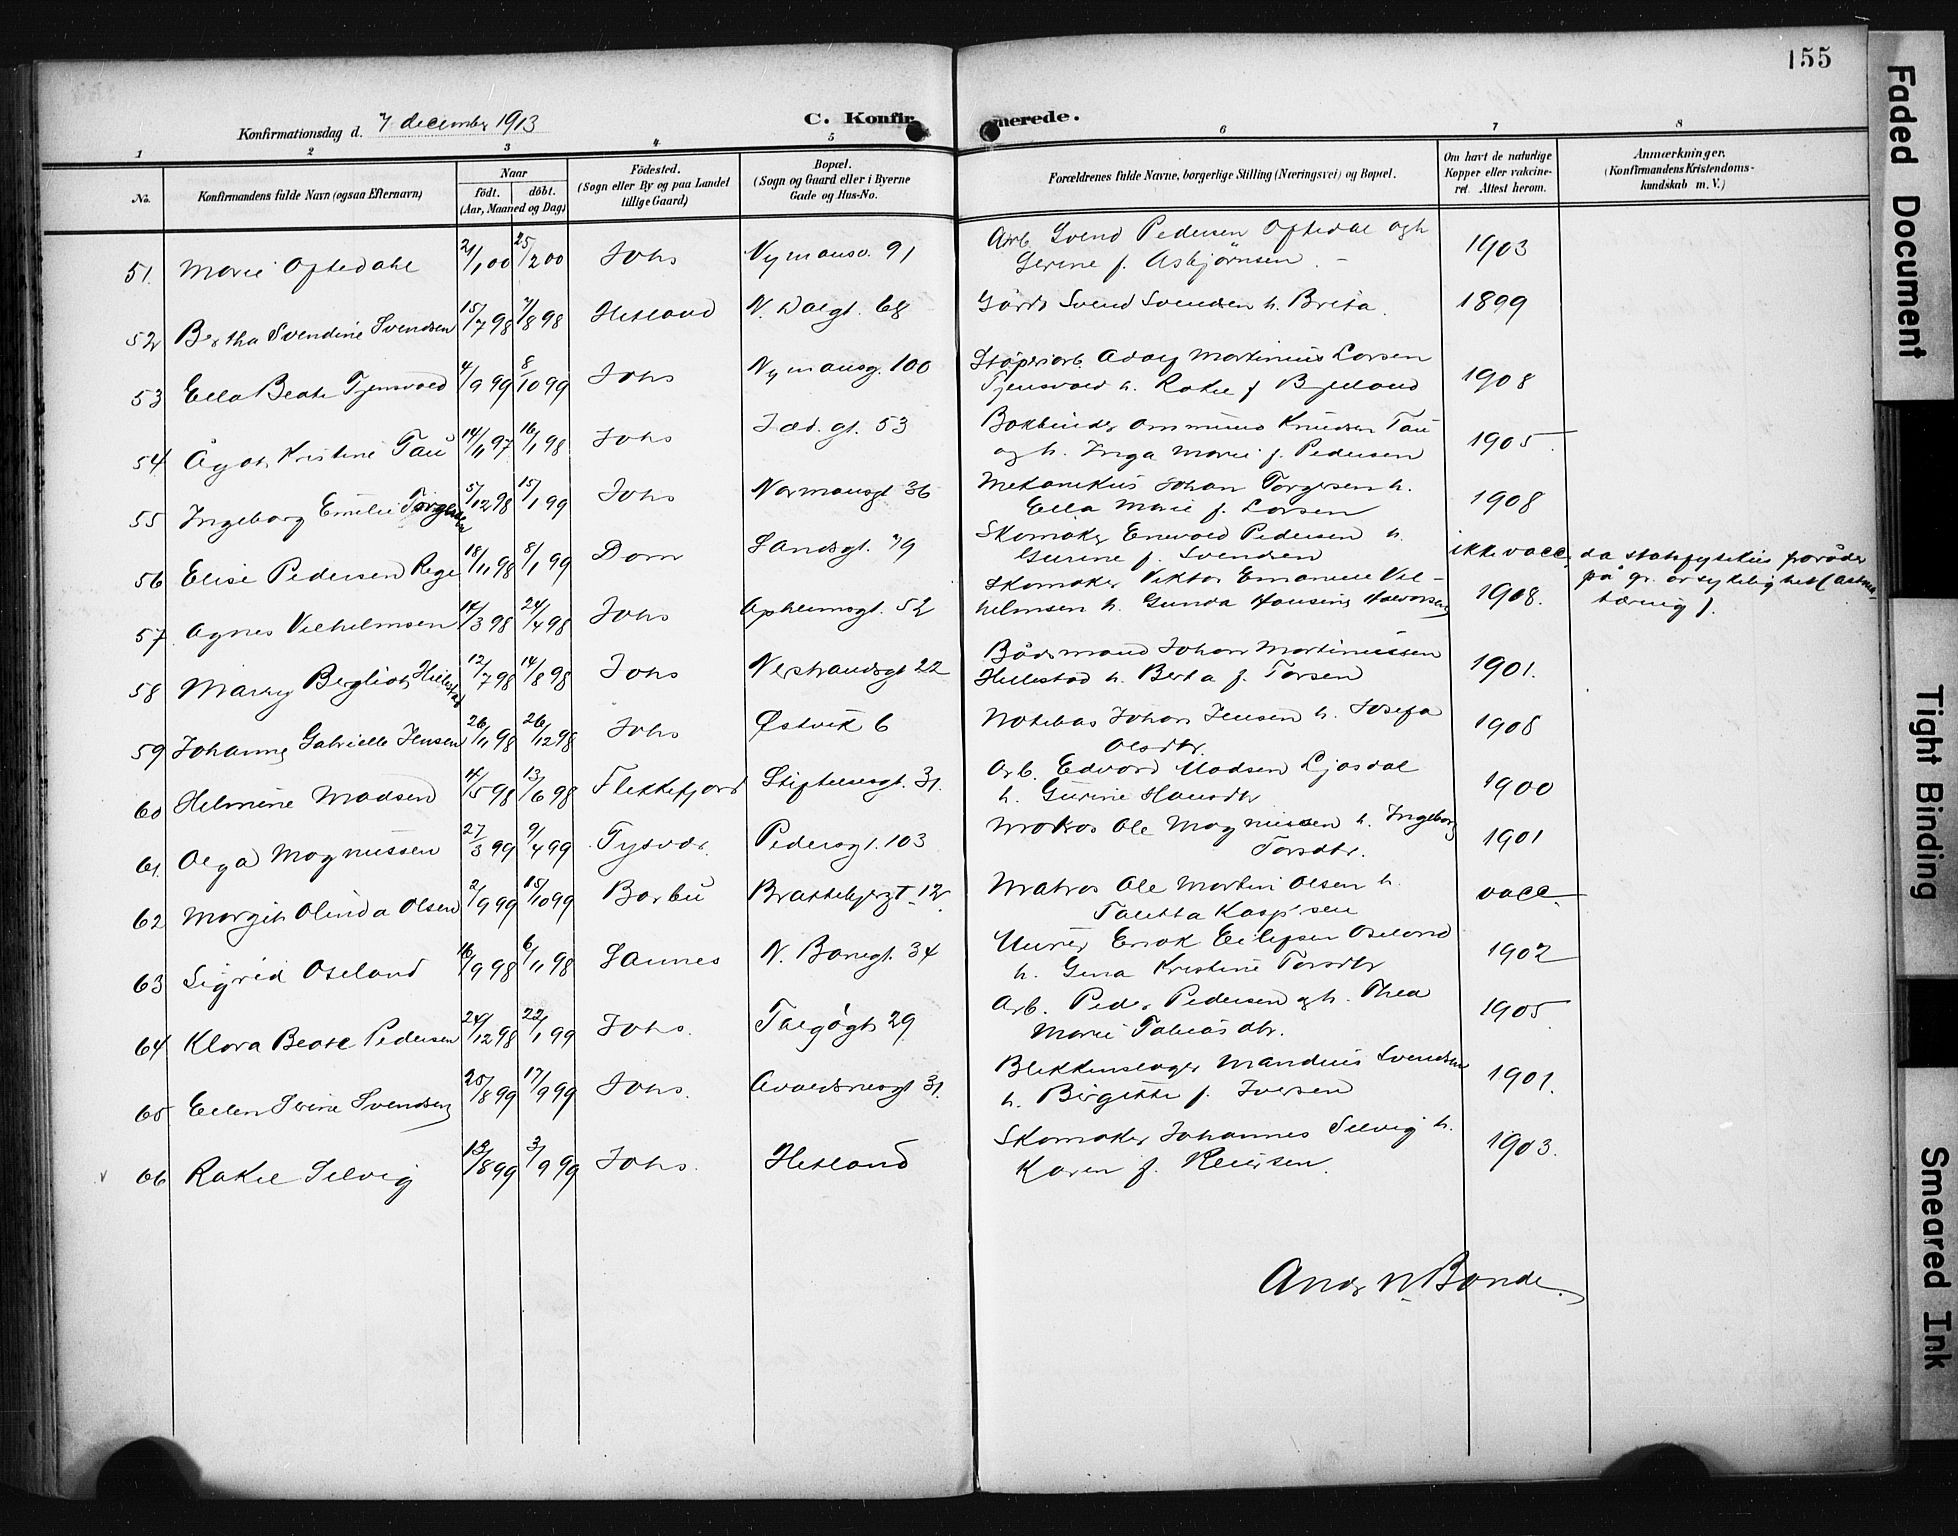 155
Konfirmationsdag d. 7 december 1913
C. Konfirmerede.
1 2 3 4 5 6 7 8
No.
Konfirmandens fulde Navn (ogsaa Efternavn)
Naar
født. døbt.
(Aar, Maaned og Dag)
Födested.
(Sogn eller By og paa Landet
tillige Gaard)
Bopæl.
(Sogn og Gaard eller i Byerne
Gade og Hus-No.
Forældrenes fulde Navne, borgerlige Stilling (Næringsvei) og Bopæl.
Om havt de naturlige
Kopper eller vakcine-
ret. Attest herom.
Anmærkninger.
(Konfirmandens Kristendoms-
kundskab m. V.)
51. Marie Oftedahl 21/1 00 25/2 00 Johs Nymansv. 91 Arb. Svend Pedersen Oftedal og h.
Gerine f. Asbjørnsen. 1903
52 Bertha Svendine Svendsen 15/7 98 7/8 98 Hetland N. Dalgt. 68 Gårdb Svend Svendsen h. Brita. 1899
53 Ella Beate Tjensvold 4/9 99 8/10 99 Johs Nymansg. 100 Støperiarb. Adolf Martinius Larsen
Tjensvold h. Rakel f Bjelland 1908
54 Ågot Kristine Tau 14/11 97 16/1 98 Johs Jæd. gt. 53 Bokbinder Ommund Knudsen Tau
og h. Inga Marie f. Pedersen 1905
55 Ingeborg Emilie Torgersen 5/12 98 15/1 99 Johs Normansgt 36 Mekanikus Johan Torgersen h.
Ella Marie f. Larsen 1908
56 Elise Pedersen Rege 18/11 98 8/1 99 Dom Sandsgt. 79 Skomaker Enevold Pedersen h.
Gurine f. Svendsen ikke vacc. da statsfysikus fraråder
på gr. af sykelighet (astma
tæring).
57 Agnes Vilhelmsen 14/3 98 24/4 98 Johs Opheimsgt. 52 Skomaker Viktor Emanuel Vil-
helmsen h. Gunda Hansine Halvorsen 1908.
58 Marry Bergliot Hillestad 12/7 98 14/8 98 Johs Verstrandsgt 22 Bådsmand Johan Martinussen
Hillestad h. Berta f. Torsen 1901.
59 Johanne Gabrielle Jensen 26/11 98 26/12 98 Johs Østvik 6 Notebas Johan Jensen h. Josefa
Olsdtr. 1908
60 Helmine Madsen 4/5 98 13/6 98 Flekkefjord Stiftelsesgt. 31. Arb. Edvard Madsen Ljosdal
h. Gurine Hansdtr 1900
61. Olga Magnussen 27/3 99 9/4 99 Tysvær. Pedersgt. 103 Matros Ole Magnussen h. Ingeborg
Torsdtr. 1901
62 Margit Olinda Olsen 2/9 99 15/10 99 Barbu Brattebergt. 12. Matros Ole Martin Olsen h.
Talitta Kaspersen vacc.
63 Sigrid Oseland 16/9 98 6/11 98 Sannes N. Banegt. 34 Murer Enok Eilefsen Oseland
h. Gina Kristine Torsdtr 1902
64 Klara Beate Pedersen 24/12 98 22/1 99 Johs. Talgøgt 29 Arb. Peder Pedersen og h. Thea
Marie Tobiasdtr. 1905
65 Ellen Serine Svendsen 25/8 99 17/9 99 Johs. Avaldsnesgt 31. Blikkenslager Mandius Svendsen
h. Birgitte f. Iversen 1901.
66 Rakel Selvig 13/8 99 3/9 99 Johs. Hetland Skomaker Johannes Selvig h.
Karen f. Reiersen. 1903.
Andr N. Bonde.
Faded Document
Tight Binding
Smeared Ink